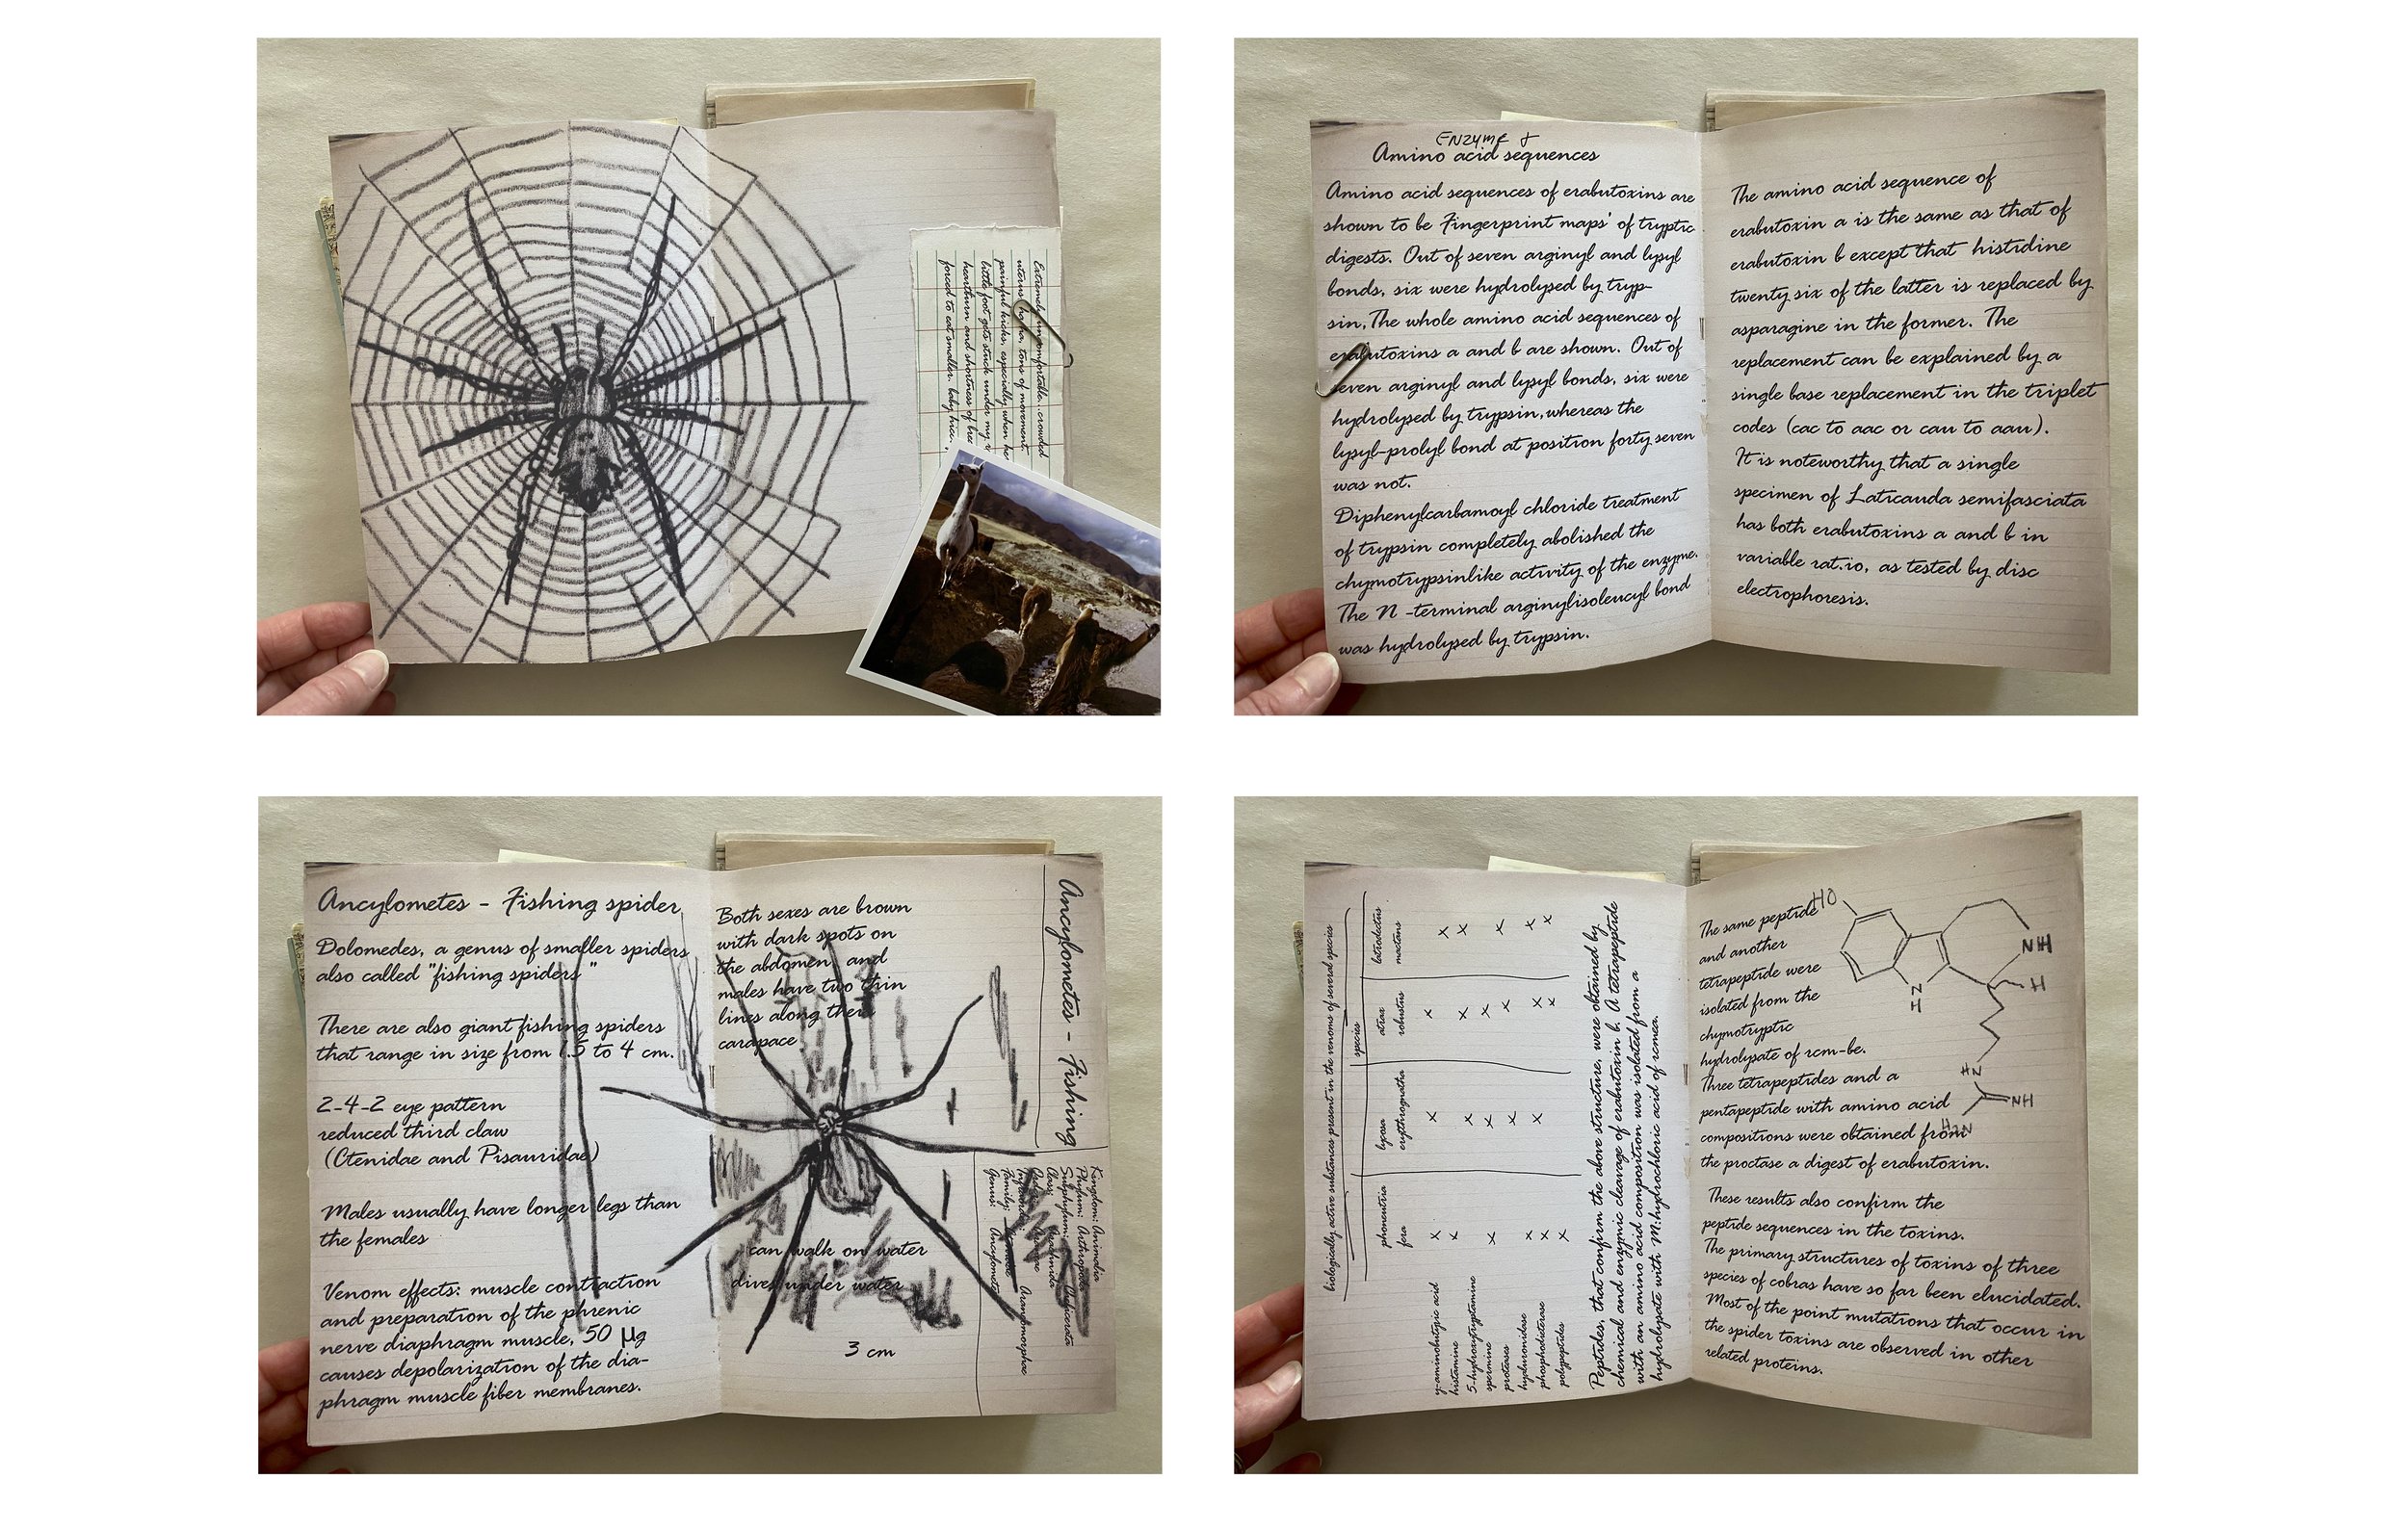 Extremely uncomfortable, crowded
uterus
painful kicks, especially when he
little foot gets stuck under my r
heartburn and shortness of brea
forced to eat smaller.
Enzyme &
Amino acid sequences
Amino acid sequences of erabutoxins are
shown to be Fingerprint maps' of tryptic
digests. Out of seven arginyl and lysyl
bonds, six were hydrolysed by tryp-
sin, The whole amino acid sequences of
erabutoxins a and b are shown. Out of
seven arginyl and lysyl bonds, six were
hydrolysed by trypsin, whereas the
lysyl-prolyl bond at position forty seven
was not.
Diphenylcarbamoyl chloride treatment
of trypsin completely abolished the
chymotrypsinlike activity of the enzyme.
The N -terminal arginylisoleucyl bond
was hydrolysed by trypsin.
The amino acid sequence of
erabutoxin a is the same as that of
erabutoxin b except that histidine
twenty six of the latter is replaced by
asparagine in the former. The
replacement can be explained by a
single base replacement in the triplet
codes (cac to aac or cau to aau).
It is noteworthy that a single
specimen of Laticauda semifasciata
has both erabutoxins a and b in
variable rat.io, as tested by disc
electrophoresis.
Ancylometes - Fishing spider
Dolomedes, a genus of smaller spiders
also called "fishing spiders"
There are also giant fishing spiders
that range in size from 1.5 to 4 cm.
2-4-2 eye pattern
reduced third claw
(Ctenidae and Pisauridae)
Males usually have longer legs than
the females
Venom effects: muscle contraction
and preparation of the phrenic
nerve diaphragm muscle, 50 µg
causes depolarization of the dia-
phragm muscle fiber membranes.
Both sexes are brown
with dark spots on
the abdomen, and
males have two thin
lines along their
carapace
can walk on water
dives under water
3 cm
Ancylometes - Fishing
Kingdom: Animalia
Phylum: Arthropoda
Subphylum: Chelicerata
Class: Arachnida
Araneomorphae
Family:
Genus: Ancylometes
biologically active substances present in the venoms of several species
species
phoneutria fera
lycosa erythrognatha
atrax robustus
latrodectus mactans
γ-aminobutyric acid x x x
histamine x x
5-hydroxytryptamine x x x
spermine x x x
proteases x x x
hyaluronidase x x x x
phosphodiesterase x x x
polypeptides x
Peptides, that confirm the above structure, were obtained by
chemical and enzymic cleavage of erabutoxin b. A tetrapeptide
with an amino acid composition was isolated from a
hydrolysate with M:hydrochloric acid of rcmea.
The same peptide
and another
tetrapeptide were
isolated from the
chymotryptic
hydrolysate of rcm-be.
Three tetrapeptides and a
pentapeptide with amino acid
compositions were obtained from
the proctase a digest of erabutoxin.
These results also confirm the
peptide sequences in the toxins.
The primary structures of toxins of three
species of cobras have so far been elucidated.
Most of the point mutations that occur in
the spider toxins are observed in other
related proteins.
HO
NH
H
N
H
HN
NH
H2N